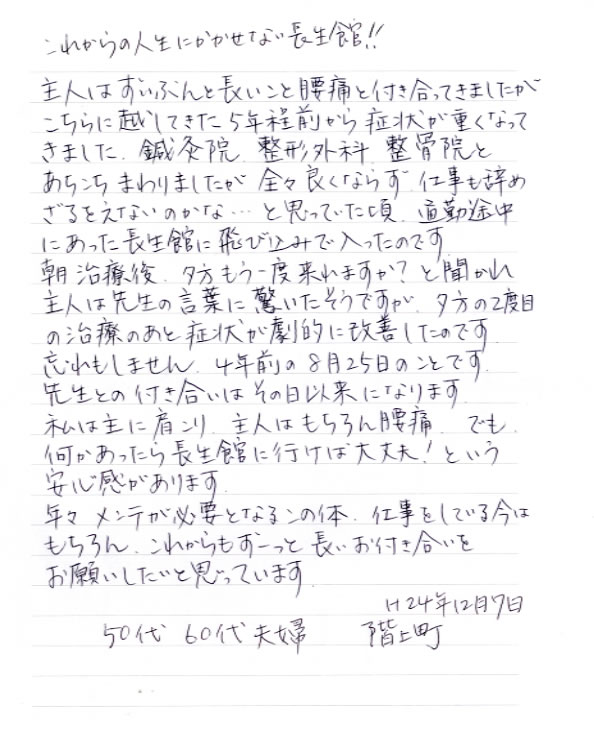 これからの人生にかかせない長生館!!
主人はずいぶんと長いこと腰痛と付き合ってきましたが
こちらに越してきた5年程前から症状が重くなって
きました。鍼灸院、整形外科、整骨院と
あちこちまわりましたが全々良くならず、仕事も辞め
ざるをえないのかな…と思っていた頃、通勤途中
にあった長生館に飛び込みで入ったのです。
朝治療後、夕方もう一度来れますか?と聞かれ
主人は先生の言葉に驚いたそうですが、夕方の2度目
の治療のあと症状が劇的に改善したのです。
忘れもしません。4年前の8月25日のことです。
先生との付き合いはその日以来になります。
私は主に肩こり、主人はもちろん腰痛。でも、
何かあったら長生館に行けば大丈夫!という
安心感があります。
年々メンテが必要となるこの体、仕事をしている今は
もちろん、これからもずーっと長いお付き合いを
お願いしたいと思っています。
H24年12月7日
50代 60代夫婦 階上町